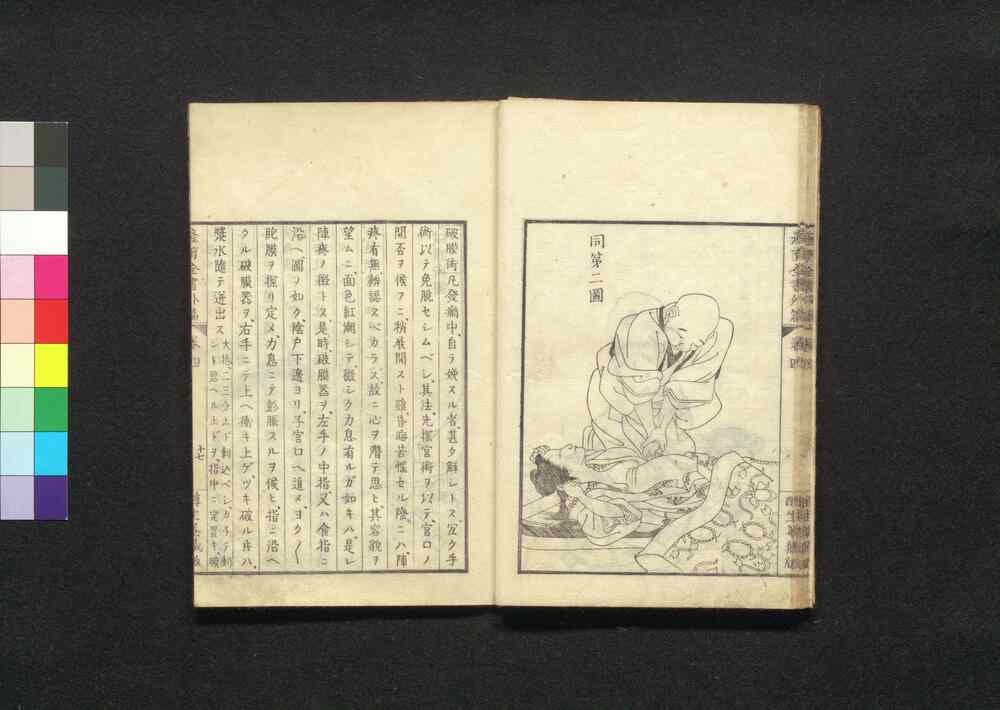 同第二圖
破膜術凡發癇中、自ラ娩スル者、甚タ鮮レトス、宜ク手
術以テ免脫セシムベシ、其法、先探宮術ヲ以テ、宮口ノ
開否ヲ候フニ、稍展開スト雖、昏悔苦惱セル際ニハ、陣
疼有無、辨認スベカラス、故ニ心ヲ潛テ思ヒ、其容貌ヲ
望ムニ、面色紅潮シテ、微シク力息有ルガ如キハ、是レ
陣疼ノ徵トス、是時、破膜器ヲ、左手ノ中指又ハ食指ニ
沿ヘ、圖ノ如ク、陰戶下邊ヨリ、子宮口ヘ進メ、ヨク〱
胞膜ヲ探リ定メ、力息ニテ膨脹スルヲ候ヒ、指ニ沿ヘ
タル破膜器ヲ、右手ニテ上ヘ衝キ上ゲ、ツキ破ル片ハ、
漿水隨テ迸出ス
卷四
十七